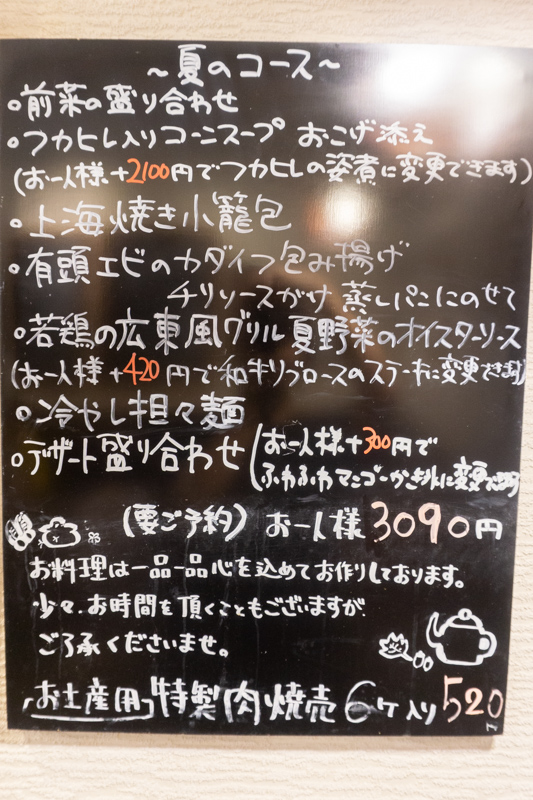 ～夏のコース～
○前菜の盛り合わせ
○フカヒレ入りコーンスープ おこげ添え
(お一人様+2100円でフカヒレの姿煮に変更できます)
○上海焼き小籠包
○有頭エビのカダイフ包み揚げ
チリソースがけ 蒸しパンにのせて
○若鶏の広東風グリル 夏野菜のオイスターソース
(お一人様+420円で和牛リブロースのステーキに変更できます)
○冷やし担々麺
○デザート盛り合わせ(お一人様+300円で
ふわふわマンゴーかき氷に変更できます)
(要ご予約) お一人様 3090円
お料理は一品一品心を込めてお作りしております。
少々、お時間を頂くこともございますが
ご了承くださいませ。
「お土産用」特製肉焼売 6ケ入り 520